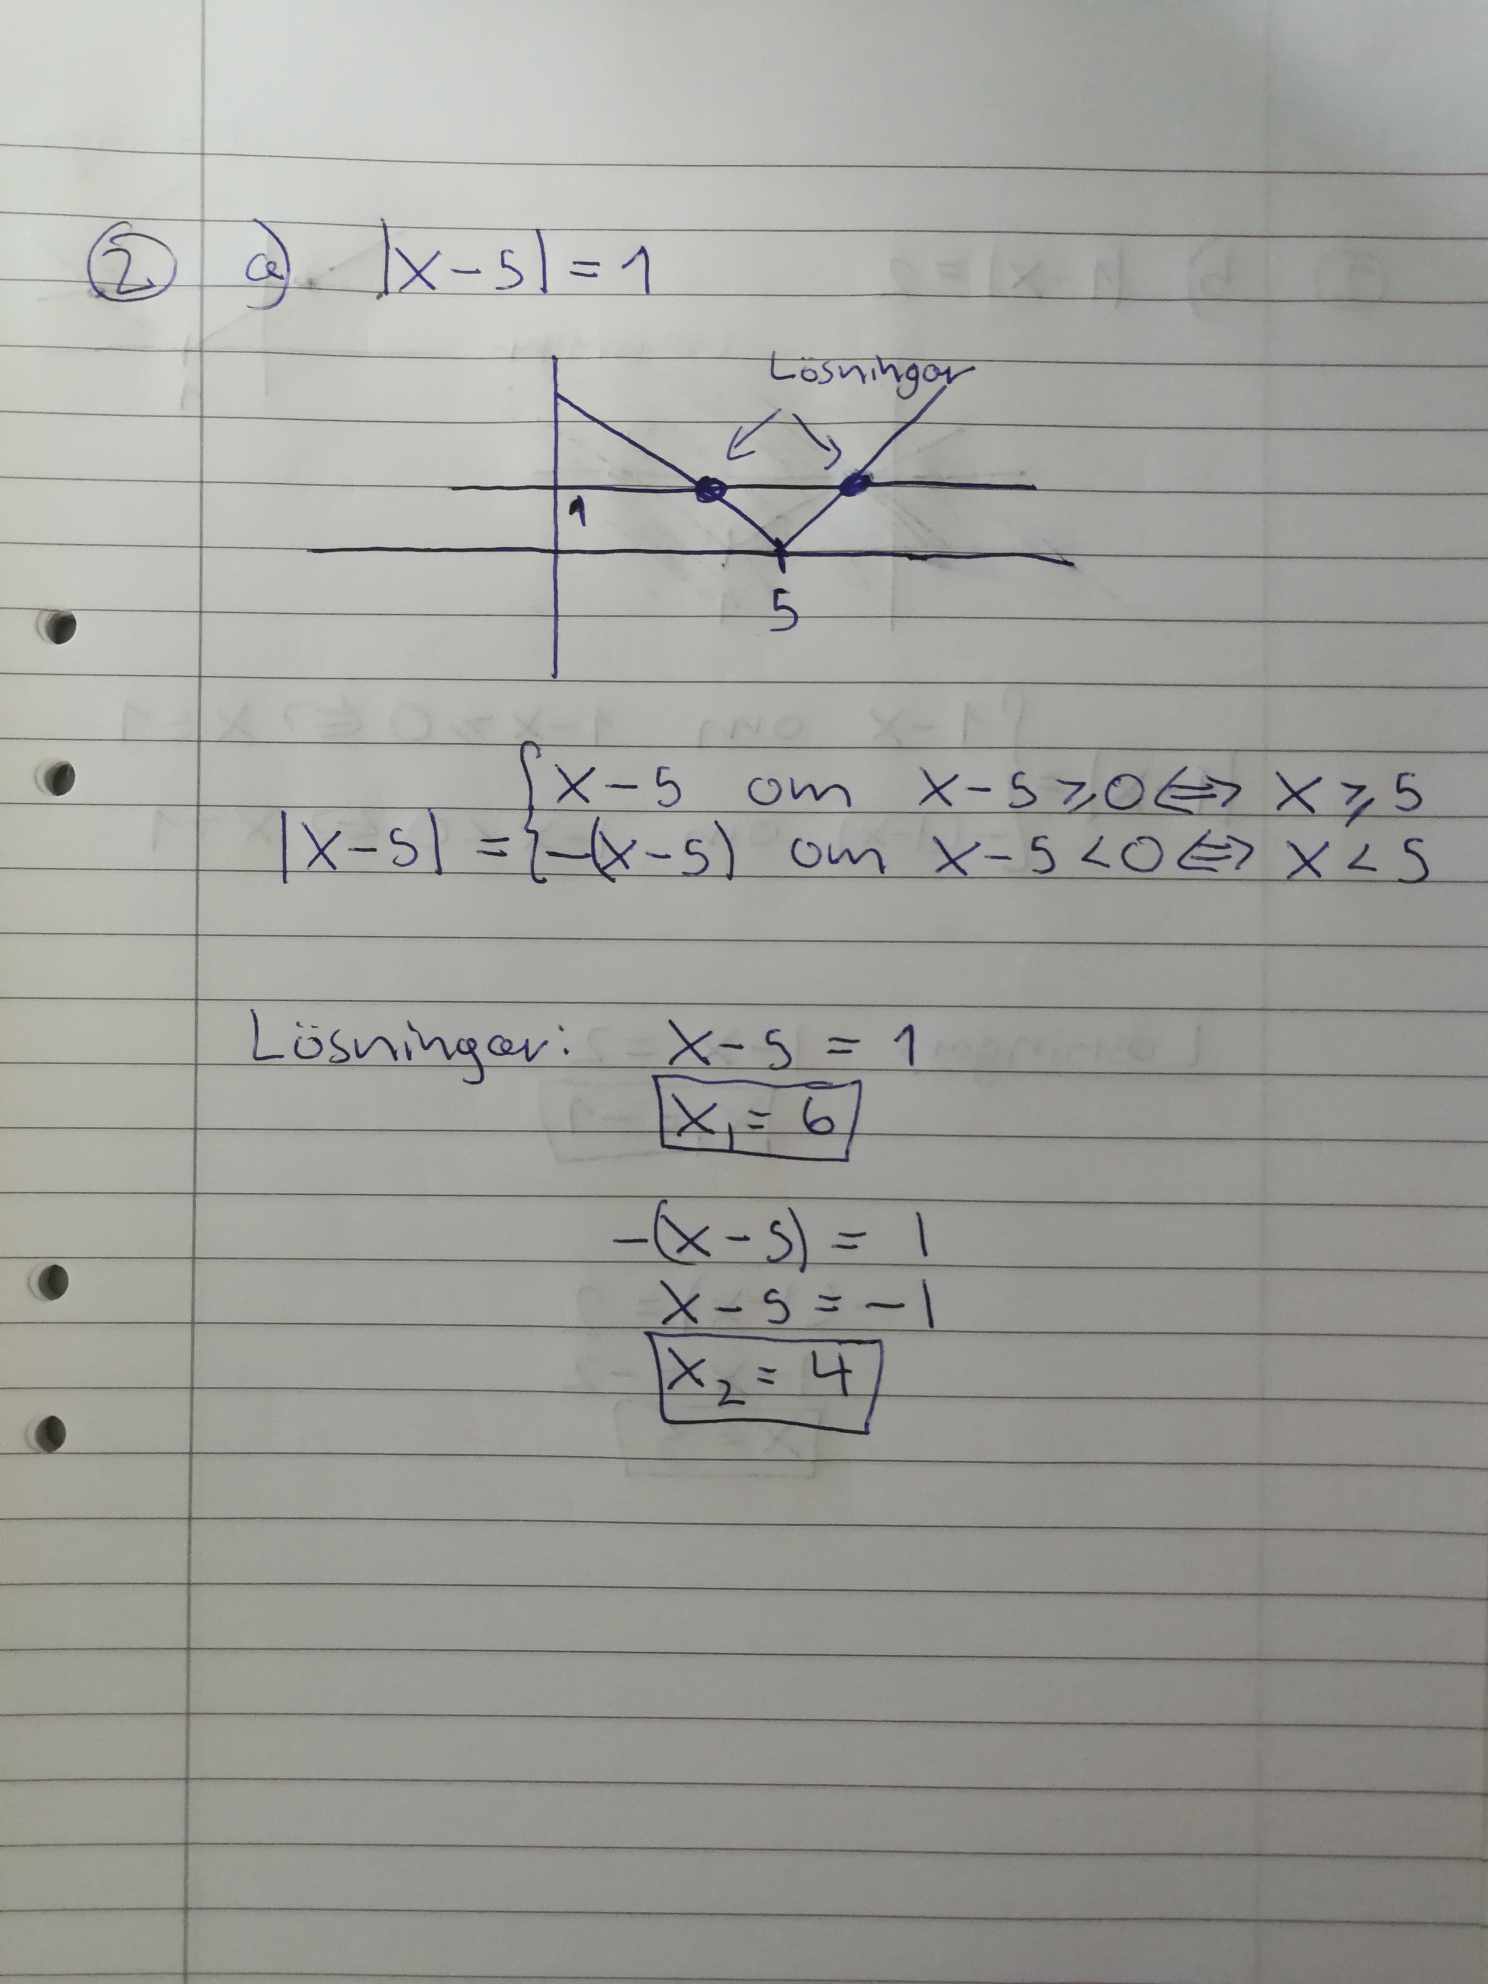 2 a) |x-5| = 1
Lösningar
1
5
|x-5| = { x-5 om x-5 ≥ 0 ⇔ x ≥ 5
-(x-5) om x-5 < 0 ⇔ x < 5
Lösningar: x-5 = 1
x₁ = 6
-(x-5) = 1
x-5 = -1
x₂ = 4